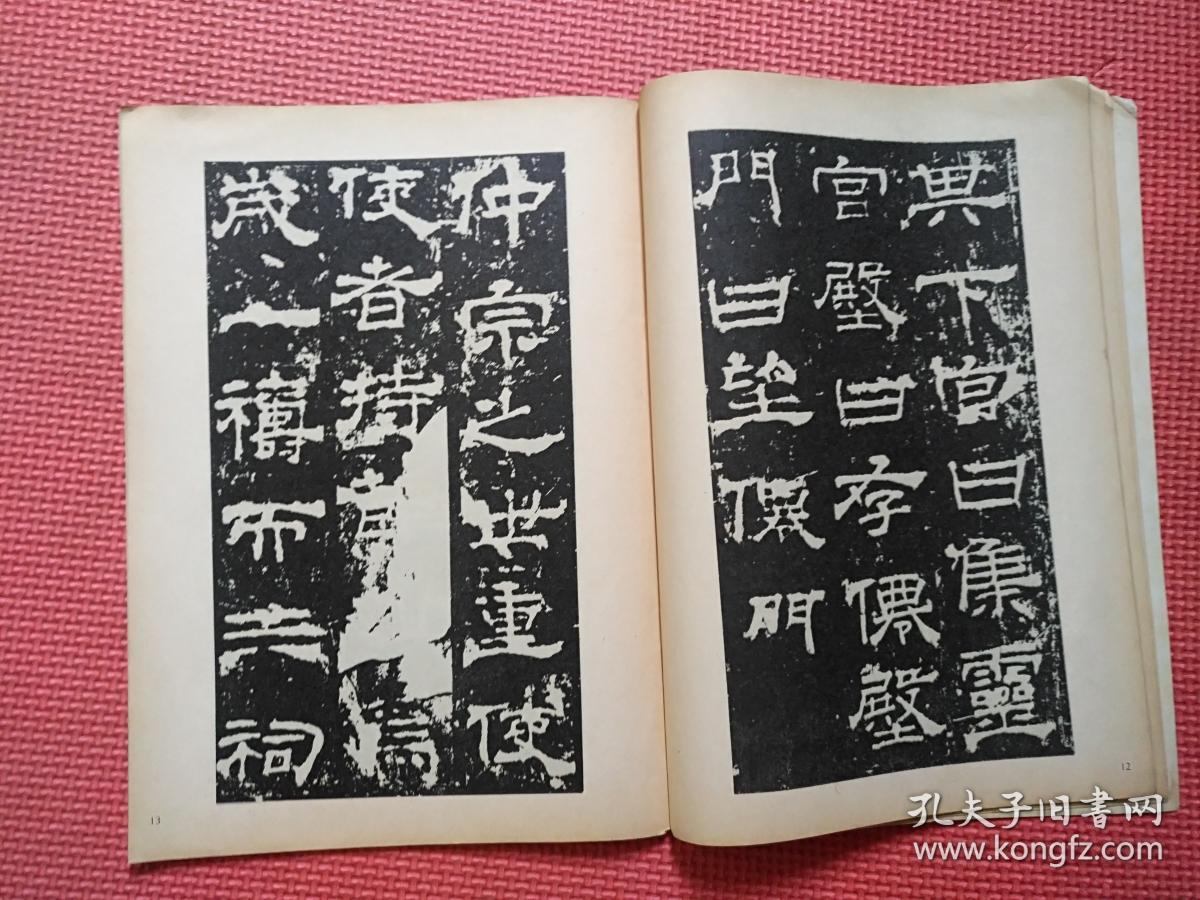 其下宮曰集靈
宮壂曰存僊壂
門曰望僊門
12
仲宗之世重使
使者持節焉
歲一禱而三祠
13
孔夫子旧書网
www.kongfz.com